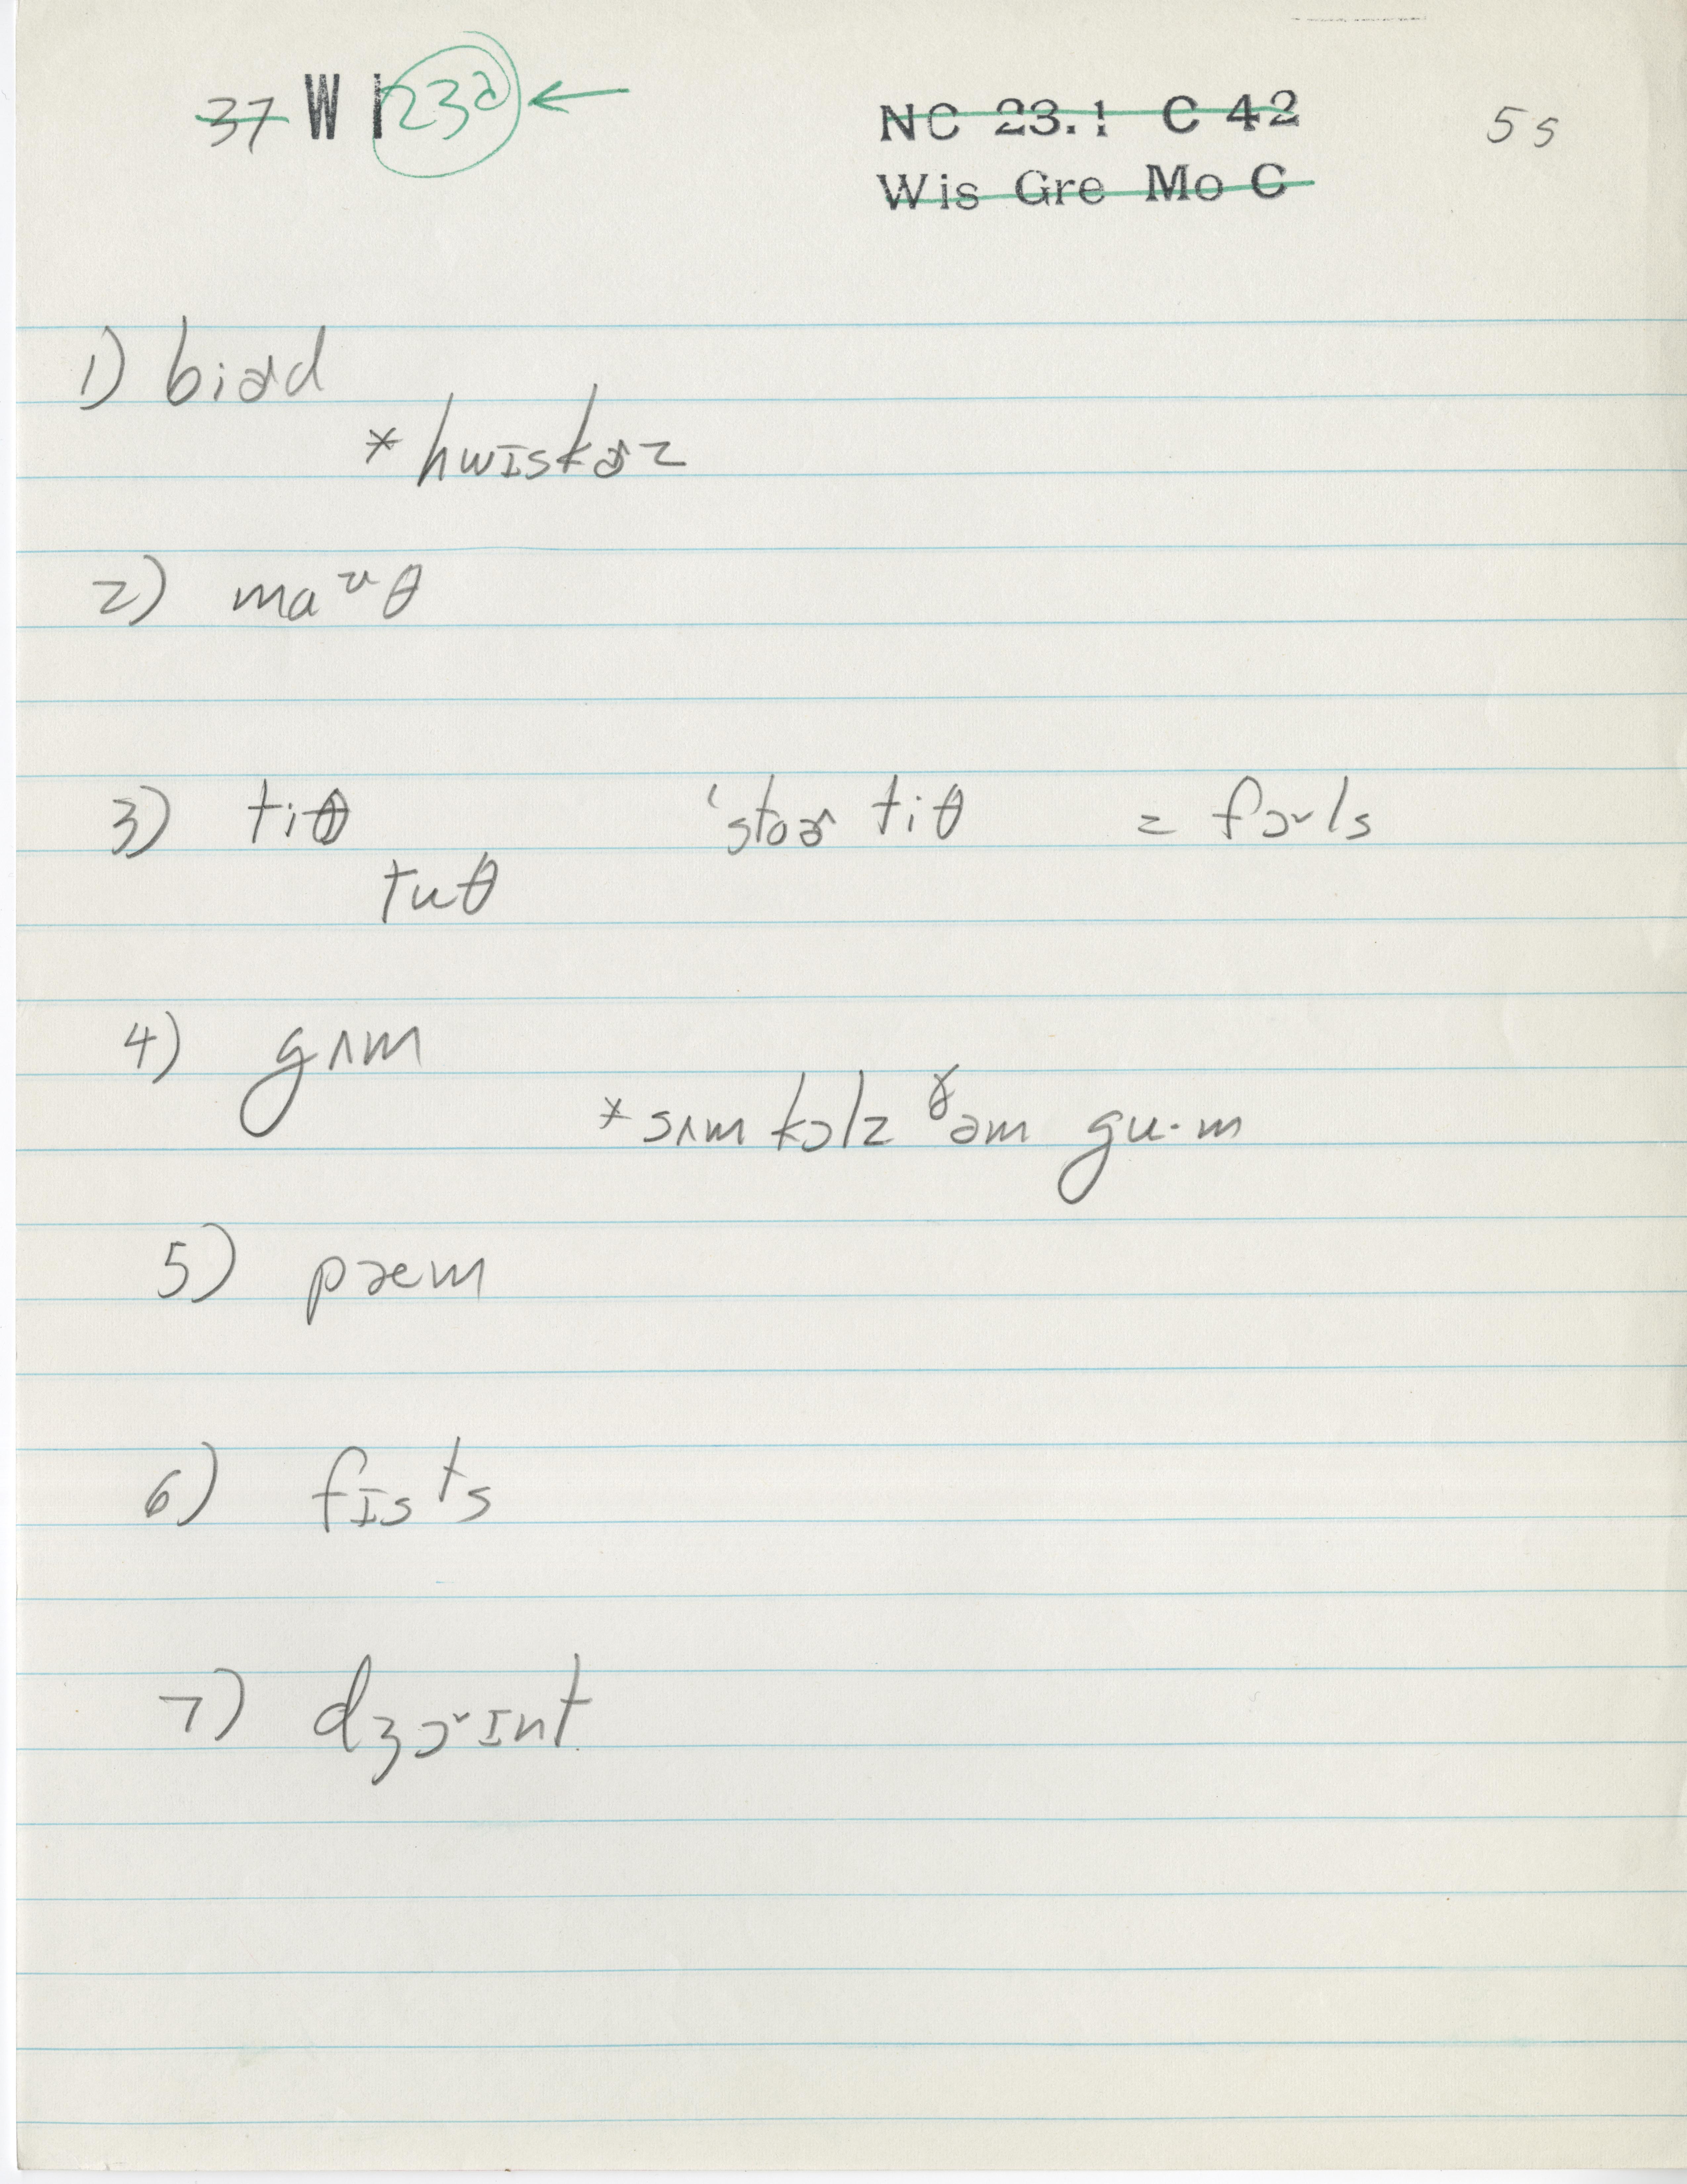 ~~37~~ W 1 23a ← ~~NC 23.1 C 42~~ 55
~~Wis Gre Mo C~~
1) biɚd
*hwɪskɚz
2) maᶷθ
3) tiθ ˈstoɚ tiθ = fɔls
tuθ
4) gʌm
*sʌm kɔlz ᵟəm gu·m
5) pæm
6) fɪsᵗs
7) dʒɔɪnt